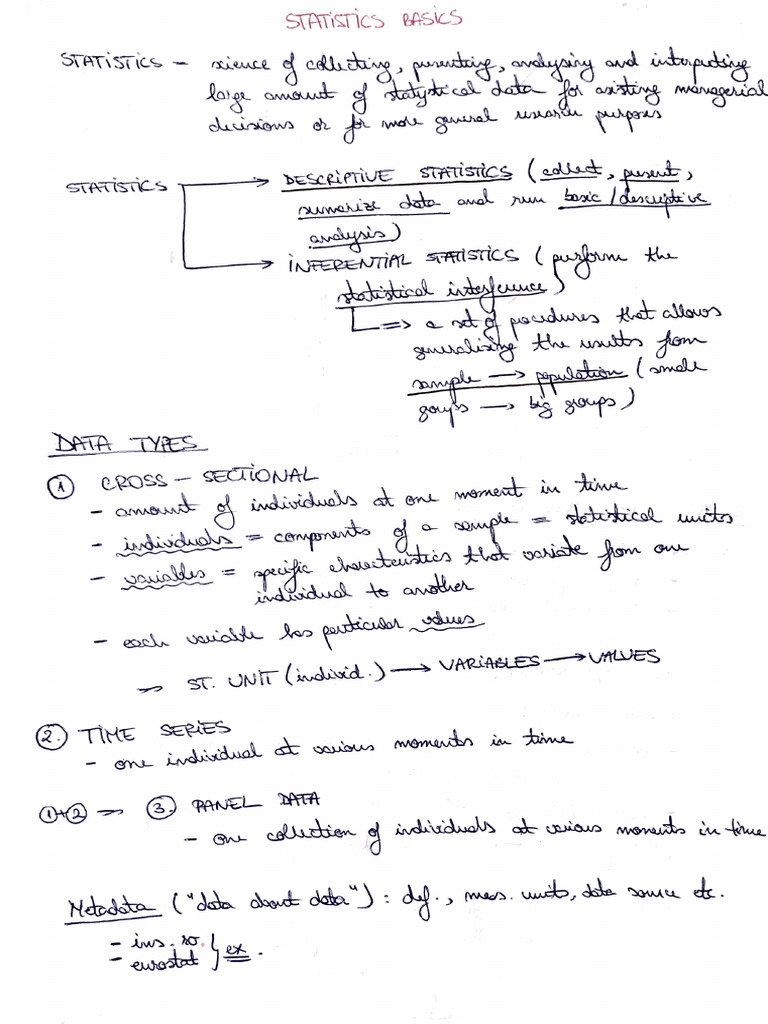 STATISTICS BASICS
STATISTICS – science of collecting, presenting, analysing and interpreting
large amount of statystical data for assisting managerial
decisions or for more general research purposes
STATISTICS → DESCRIPTIVE STATISTICS (collect, present,
sumarize data and run basic / descriptive
analysis)
→ INFERENTIAL STATISTICS (perform the
statistical interference)
=> a set of procedures that allows
generalising the results from
sample → population (small
groups → big groups)
DATA TYPES
① CROSS – SECTIONAL
- amount of individuals at one moment in time
- individuals = components of a sample = statistical units
- variables = specific charcteristics that variate from one
individual to another
- each variable has particular values
~> ST. UNIT (individ.) → VARIABLES → VALUES
②. TIME SERIES
- one individual at various moments in time
①+② ~> ③. PANEL DATA
- one collection of individuals at various moments in time
Metadata ("data about data") : def., meas. units, data source etc.
- ins. ro.
- eurostat } ex.